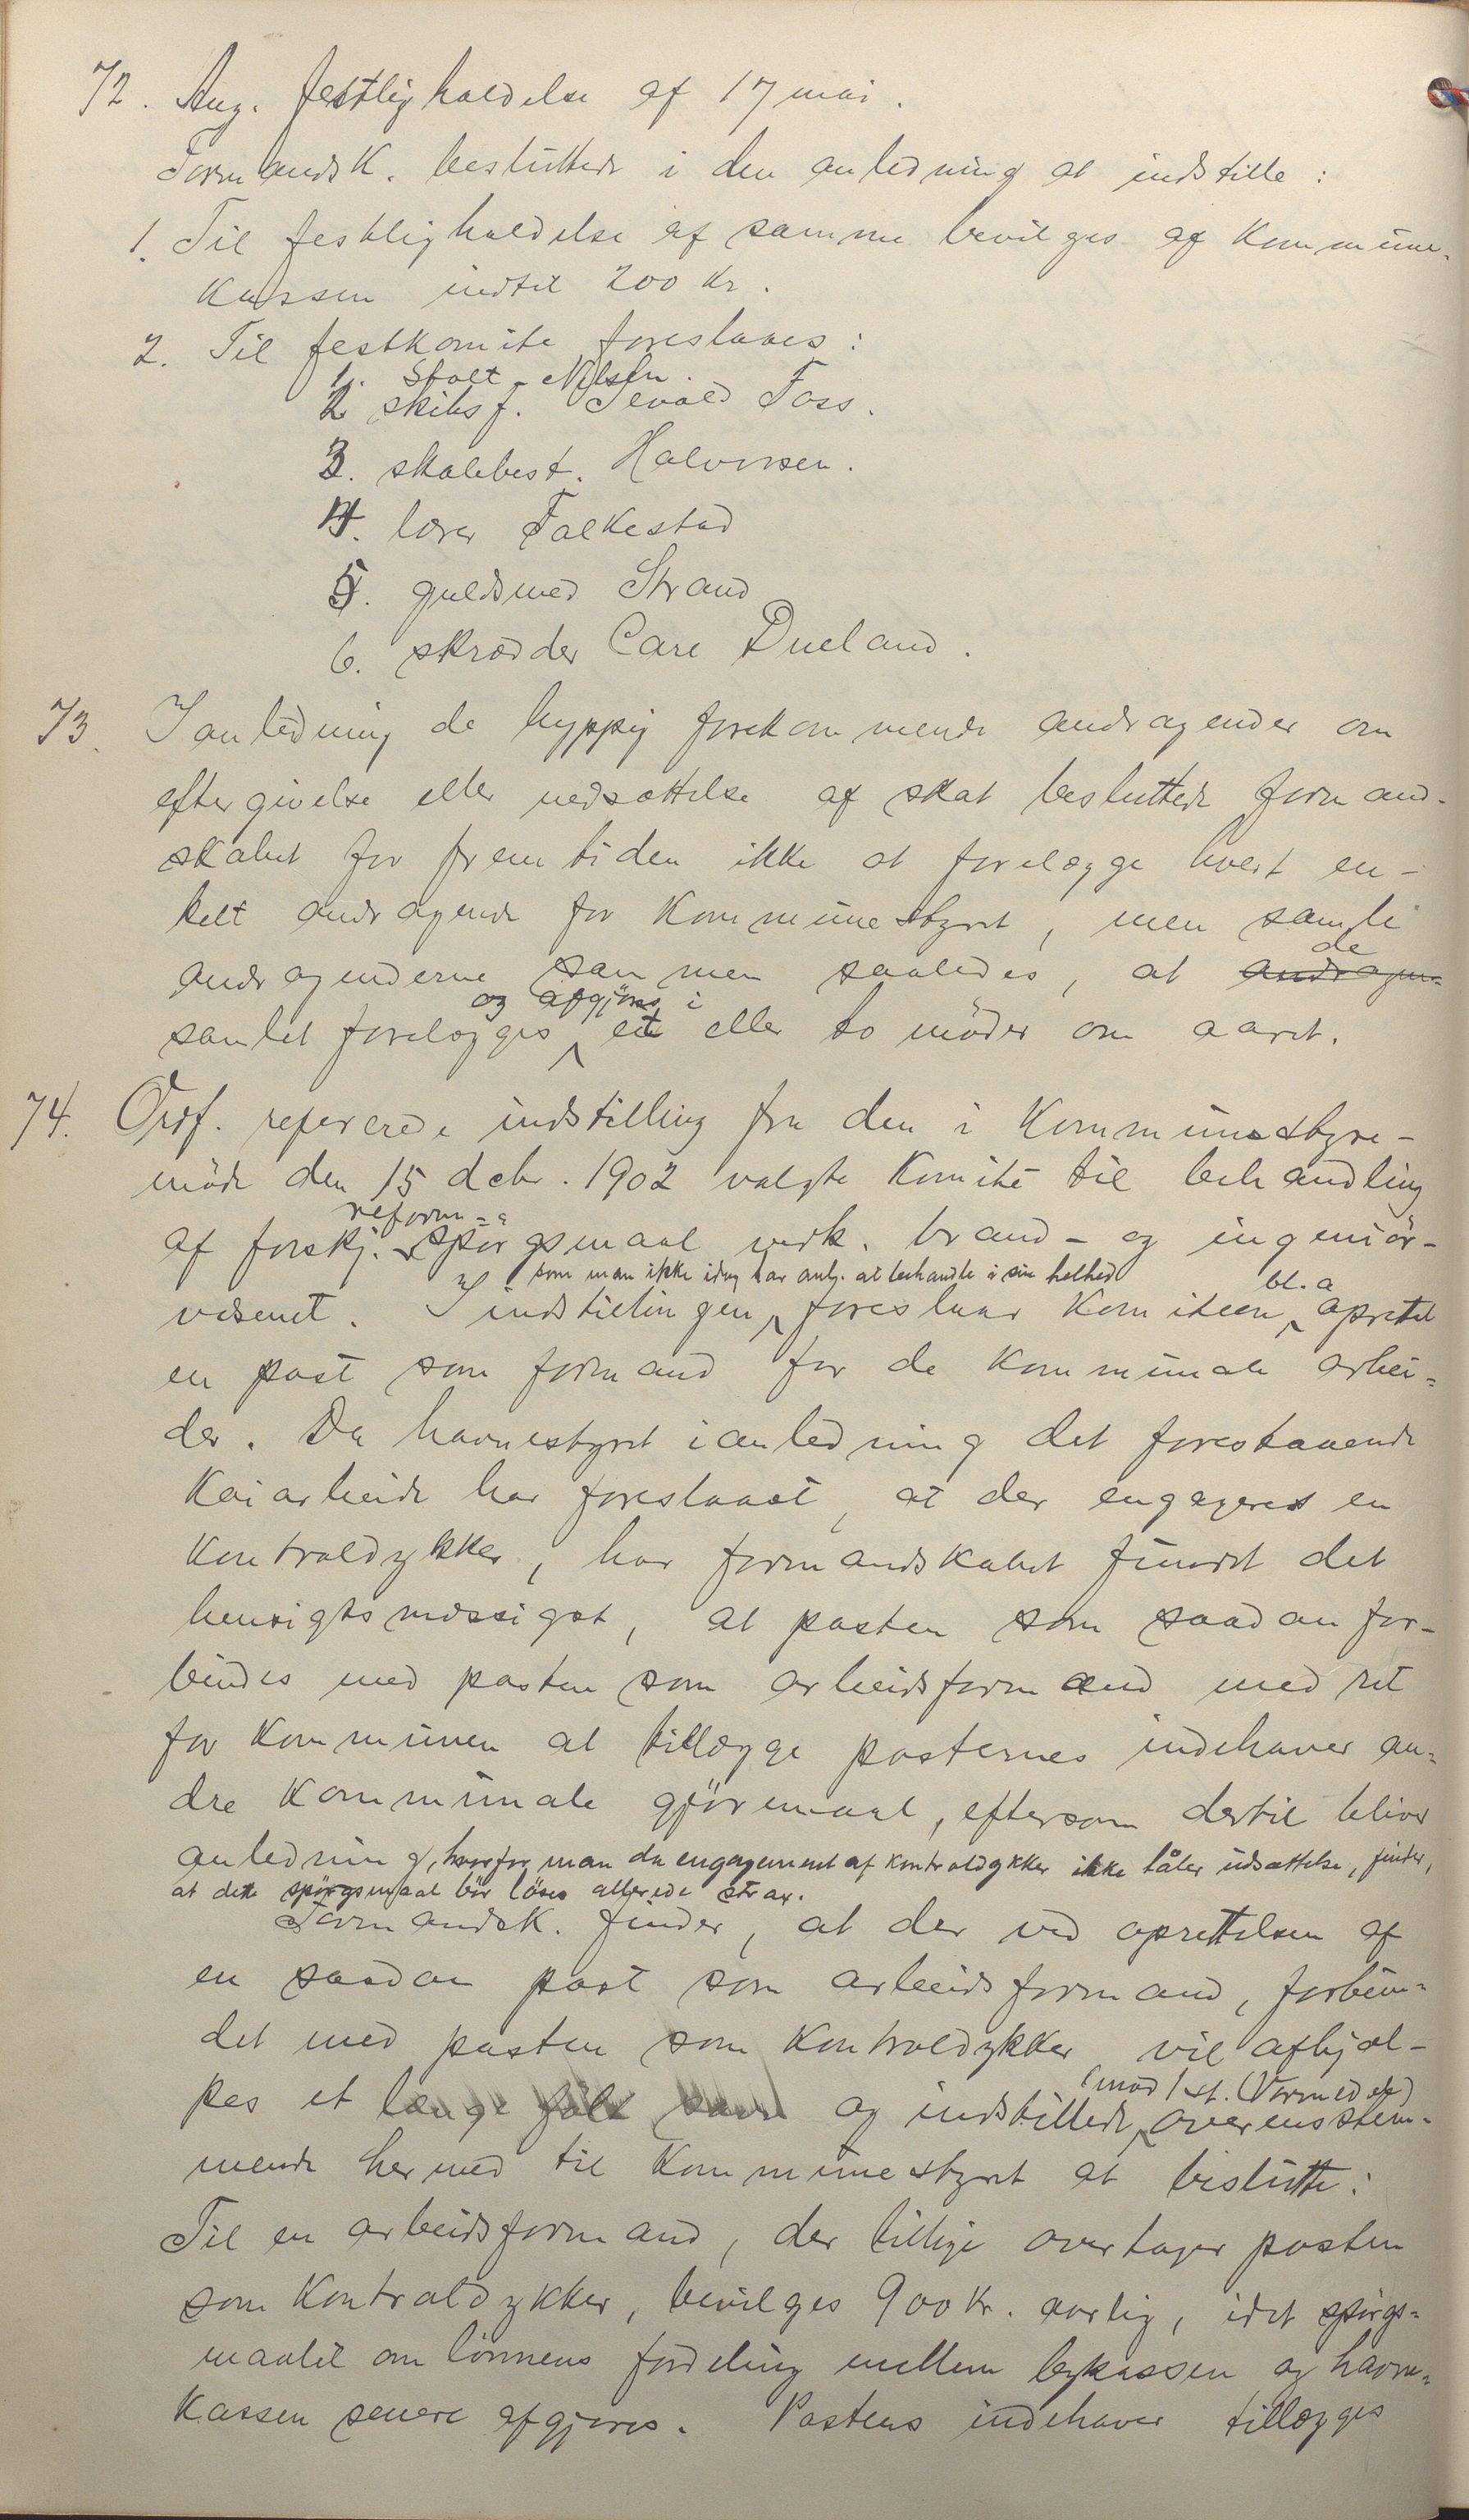 72. Ang. festligholdelse af 17 mai.
Formandsk. besluttede i den anledning at indstille:
1. Til festligholdelse af samme bevilges af kommune-
kassen indtil 200 kr.
2. Til festkomite foreslaaes:
1. Stolt-Nilsen.
2 skibsf. Tevald Foss.
3. skolebest. Halvorsen.
4. lærer Falkestad
5. guldsmed Strand
6. skrædder Carl Dueland.
73. I anledning de hyppig forekommende andragender om
eftergivelse eller nedsættelse af skat besluttede formand-
skabet for fremtiden ikke at forelægge hvert en-
kelt andragende for kommunestyret, men samle
andragenderne sammen saaledes, at andragen- de
samlet forelægges og afgjøres i et eller to møder om aaret.
74. Ordf. refererede indstilling fra den i kommunestyre-
møde den 15 decbr. 1902 valgte komite til behandling
af forskj. reform-spørgsmaal vedk. brand- og ingeniør-
væsenet. I indstillingen, som man ikke idag har anl. at behandle i sin helhed foreslaar komiteen bl.a oprettet
en post som formand for de kommunale arbei-
der. Da havnestyret i anledning det forestaaende
kaiarbeide har foreslaaet, at der engageres en
kontroldykker, har formandskabet fundet det
hensigtsmæssigst, at posten som saadan for-
bindes med posten som arbeidsformand med ret
for kommunen at tillægge posternes indehaver an-
dre kommunale gjøremaal, eftersom dertil bliver
anledning, hvorfor man da engagement af kontroldykker ikke tåler udsættelse, finder,
at dette spørgsmaal bør løses allerede strax.
Formandsk. finder, at der ved oprettelsen af
en saadan post som arbeidsformand, forbun-
det med posten som kontroldykker vil afhjæl-
pes et længe følt savn og indstillede (mod 1 st. overensstem-
mende hermed til kommunestyret at beslutte:
Til en arbeidsformand, der tillige overtager posten
som kontroldykker, bevilges 900 kr. aarlig, idet spørgs-
maalet om lønnens fordeling mellem bykassen og havne-
kassen senere afgjøres. Postens indehaver tillægges